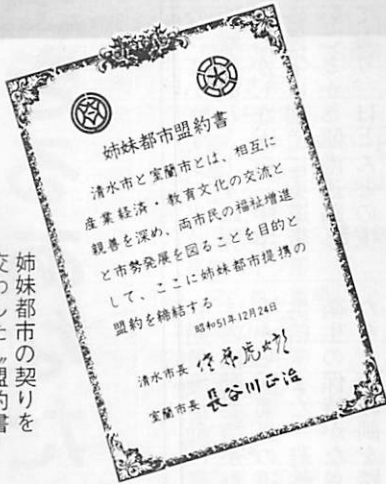 姉妹都市盟約書
清水市と室蘭市とは、相互に
産業経済・教育文化の交流と
親善を深め、両市民の福祉増進
と市勢発展を図ることを目的と
して、ここに姉妹都市提携の
盟約を締結する
昭和51年12月24日
清水市長
室蘭市長 長谷川正治
姉妹都市の契りを
交わした〝盟約書